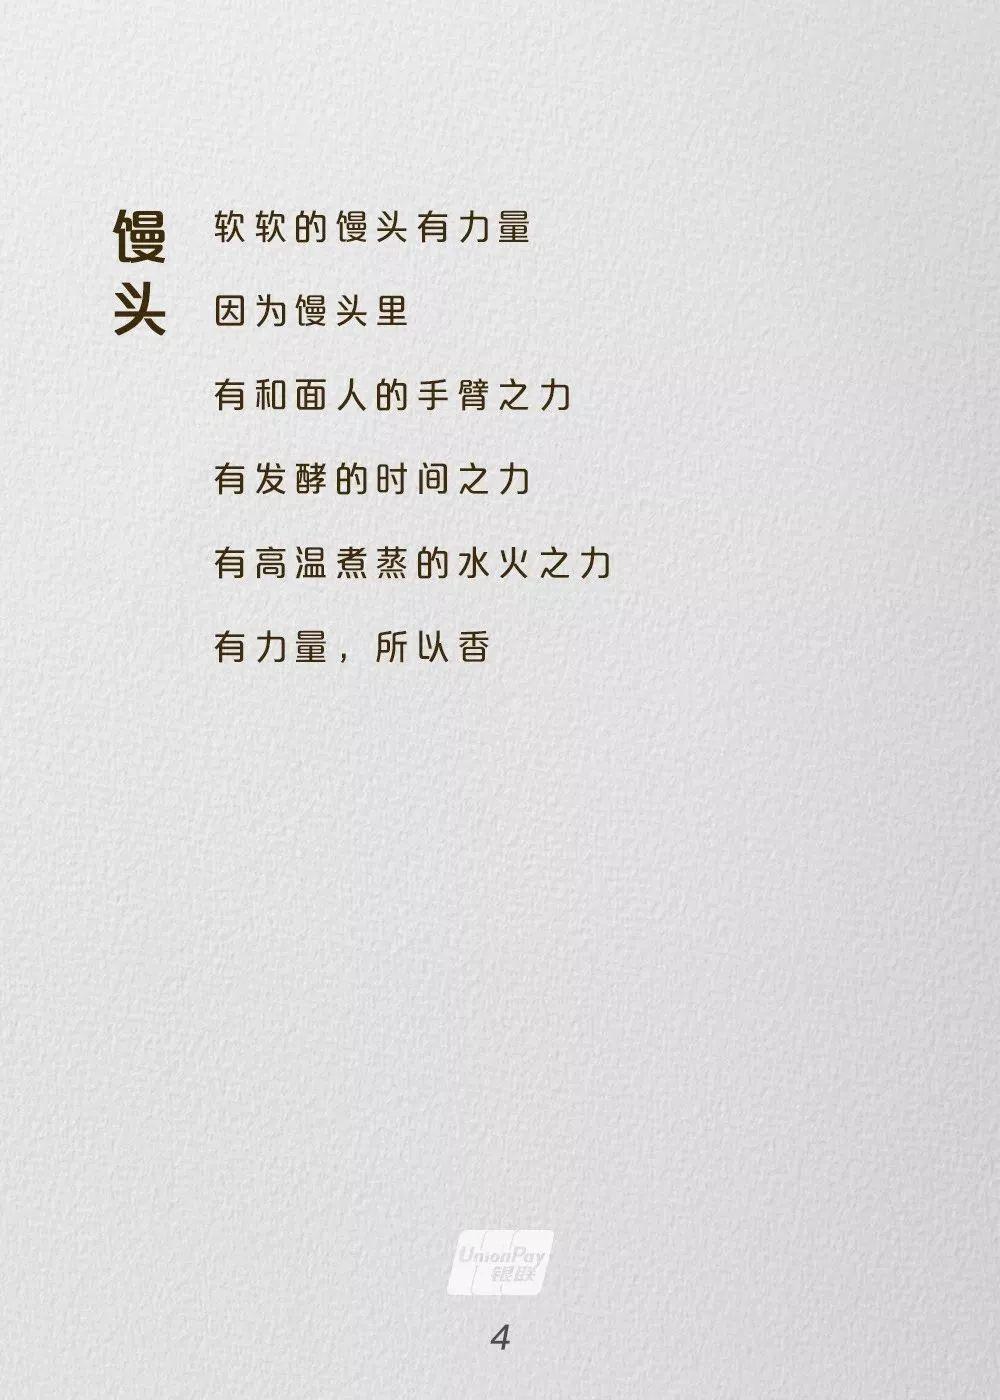 馒头
软软的馒头有力量
因为馒头里
有和面人的手臂之力
有发酵的时间之力
有高温煮蒸的水火之力
有力量，所以香
UnionPay
银联
4